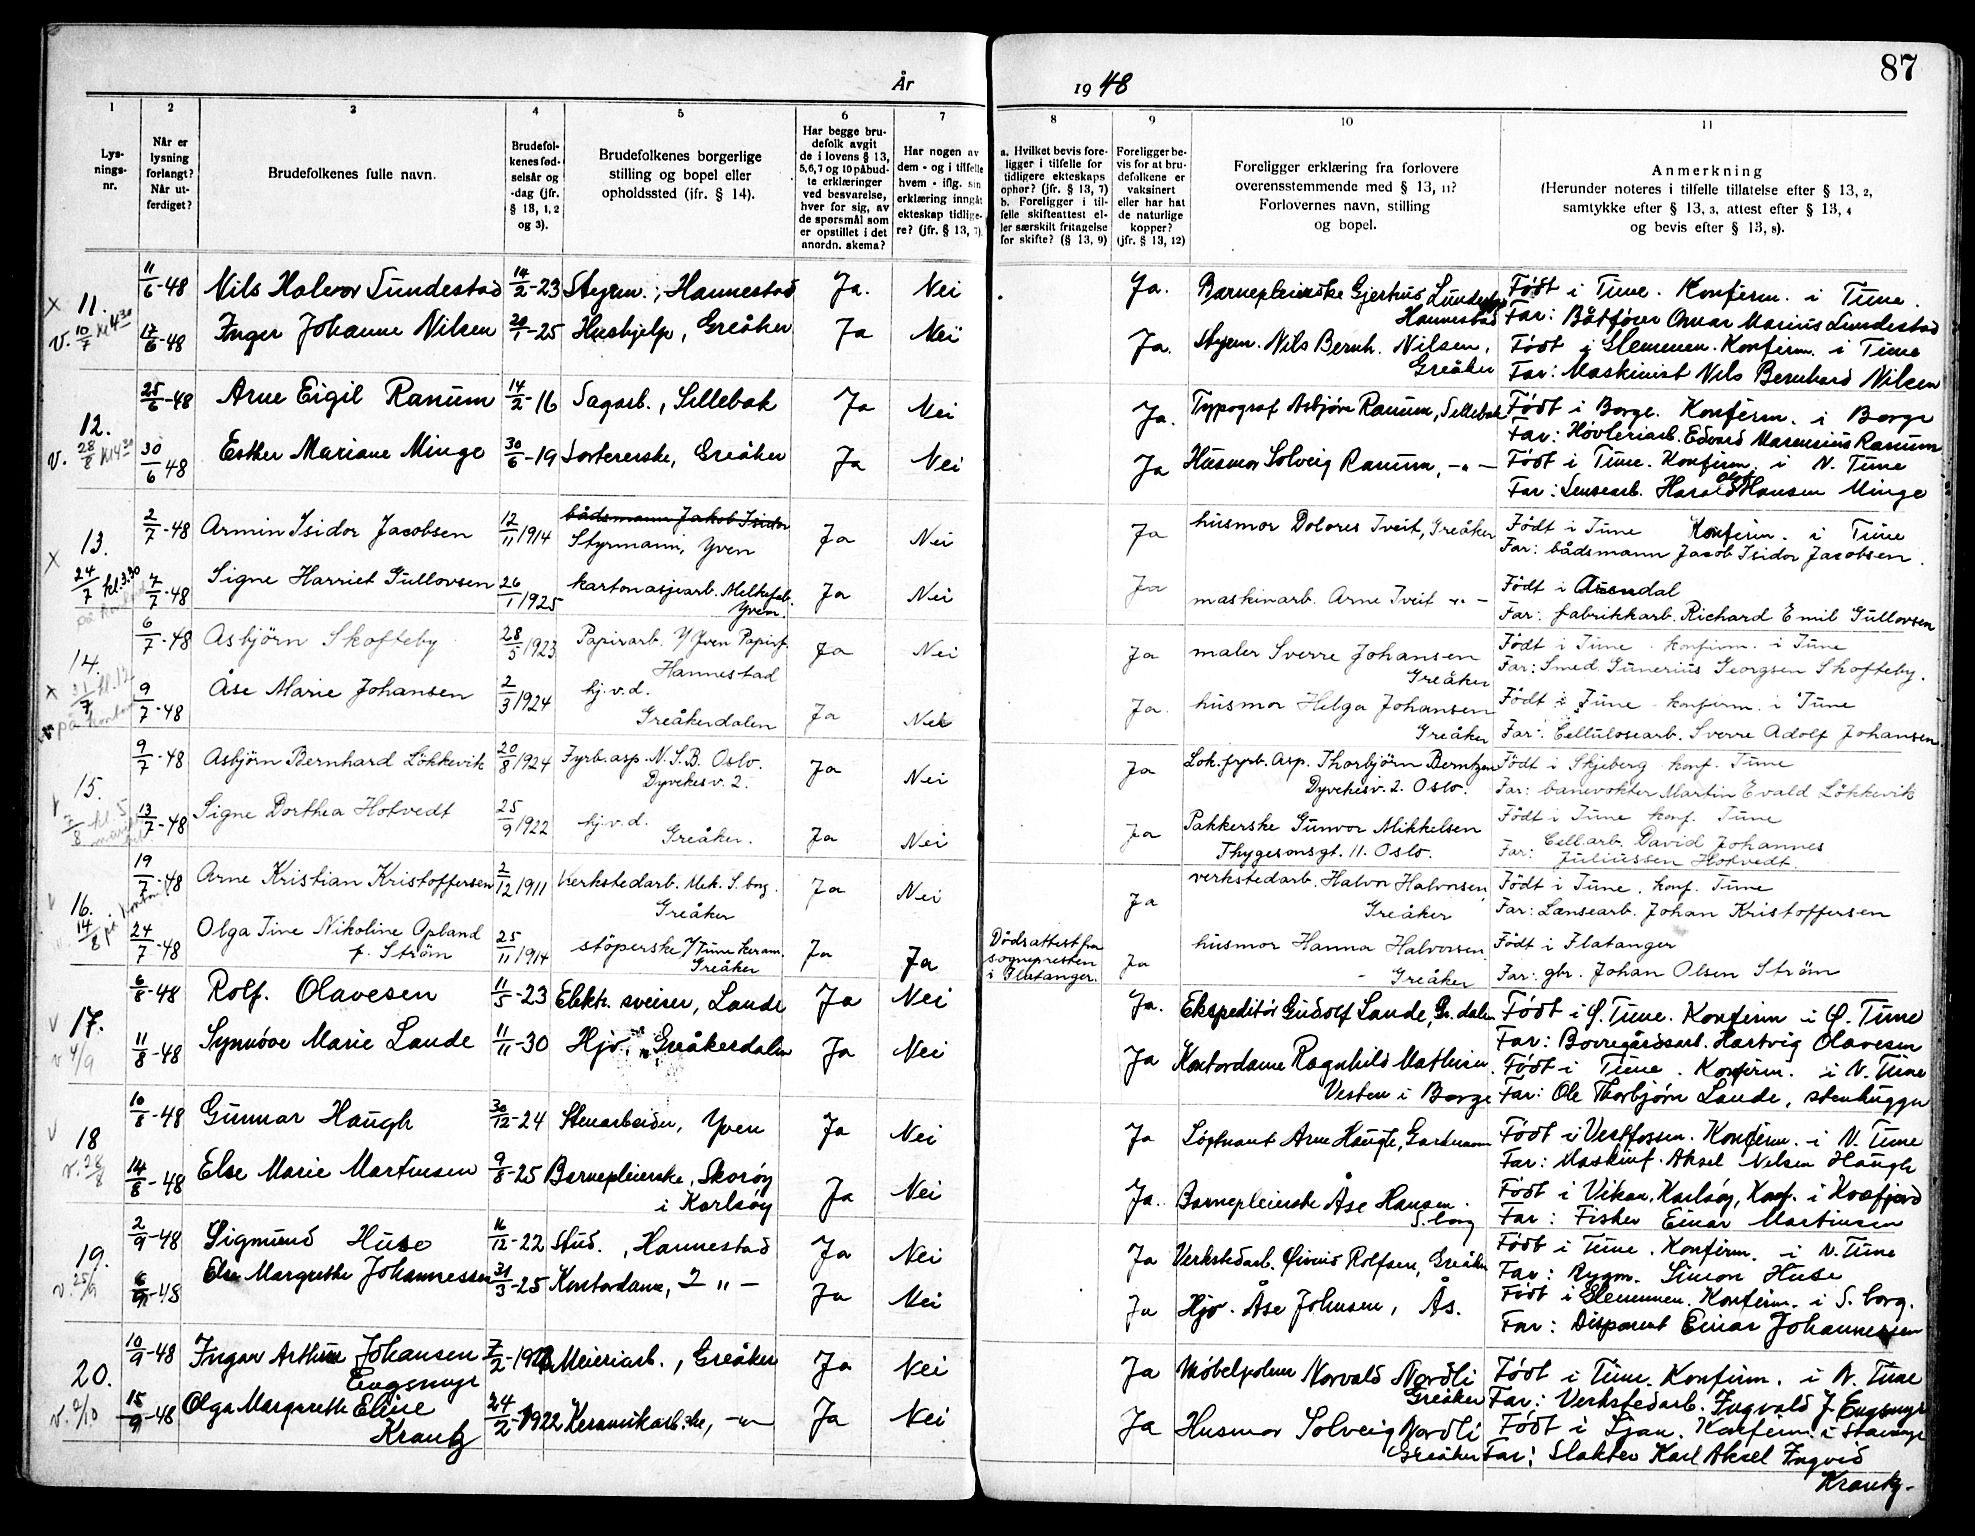 87
År 1948
1 2 3 4 5 6 7 8 9 10 11
Lysningsnr.
Når er lysning forlangt? Når utferdiget?
Brudefolkenes fulle navn.
Brudefolkenes fødselsår og -dag (jfr. § 13, 1, 2 og 3).
Brudefolkenes borgerlige stilling og bopel eller opholdssted (ifr. § 14).
Har begge brudefolk avgit de i lovens § 13, 5,6,7 og 10 påbudte erklæringer ved besvarelse, hver for sig, av de spørsmål som er opstillet i det anordn. skema?
Har nogen av dem - og i tilfelle hvem - iflg. sin erklæring inngåt ekteskap tidligere? (jfr. § 13, 7).
a. Hvilket bevis foreligger i tilfelle for tidligere ekteskaps ophør? (jfr. § 13, 7)
b. Foreligger i tilfelle skifteattest eller særskilt fritagelse for skifte? (§ 13, 9)
Foreligger bevis for at brudefolkene er vaksinert eller har hat de naturlige kopper? (jfr. § 13, 12)
Foreligger erklæring fra forlovere overensstemmende med § 13, 11? Forlovernes navn, stilling og bopel.
Anmerkning
(Herunder noteres i tilfelle tillatelse efter § 13, 2, samtykke efter § 13, 3, attest efter § 13, 4 og bevis efter § 13, 8).
x 11. v. 10/7 kl 4 30
11/6-48 Nils Halvor Lundestad 14/2-23 Styrm., Hannestad Ja. Nei Ja. Barnepleierske Gjerhus Hannestad Født i Tune. Konfirm. i Tune.
Far: Båtfører Omar Marius Lundestad
17/6-48 Inger Johanne Nilsen 20/1-25 Hushjelp, Greåker Ja Nei Ja. Styrm. Nils Bernh. Nilsen, Greåker Født i Glemmen. Konfirm. i Tune
Far: Maskinist Nils Bernhard Nilsen
12. v. 28/8 kl 4 30
25/6-48 Arne Eigil Ranum 14/2-16 Sagarb., Sellebak Ja Nei Ja. Typograf Asbjørn Ranum, Sellebak Født i Borge. Konfirm. i Borge
Far: Høvleriarb. Edvard Marensius Ranum
30/6 48 Esther Mariane Minge 30/6-19 Sortererske, Greåker Ja Nei Ja Husmor Solveig Ranum, -"- Født i Tune. Konfirm. i N. Tune
Far: Lensearb. Harald Olaf Hansen Minge
x 13. 24/7 kl. 3.30
2/7-48 Armin Isidor Jacobsen 12/11 1914 bådsmann Jakob Isidor Styrmann, Yven Ja Nei Ja husmor Dolores Tveit, Greåker Født i Tune Konfirm. i Tune
Far: bådsmann Jacob Isidor Jacobsen.
7/7-48 Signe Harriet Gullovsen 26/1 1925 kartonasjearb. Melkefab. Yven. Ja Nei Ja maskinarb. Arne Tveit -"- Født i Arendal
Far: fabrikkarb. Richard Emil Gullovsen
x 14. 31/7 kl. 12 på kontoret
6/7-48 Asbjörn Skofteby 28/5 1923 Papirarb. v/ Yven Papirf. Hannestad Ja Nei Ja maler Sverre Johansen Greåker Født i Tune konfirm. i Tune
Far: Smed. Gunerius Georgsen Skofteby.
9/7-48 Åse Marie Johansen 2/3 1924 hj.v.d. Greåkerdalen Ja Nei Ja husmor Helga Johansen Greåker Født i Tune konfirm. i Tune
Far: Cellulosearb. Sverre Adolf Johansen.
v 15. 7/8 kl. 5
9/7-48 Asbjörn Bernhard Lökkevik 20/8 1924 Fyrb.asp. N.S.B. Oslo. Dyvekesv. 2. Ja Nei Ja Lok. fyrb. Asp. Thorbjörn Berntzen Dyvekesv. 2. Oslo. Født i Skjeberg konf. Tune
Far: banevokter Martin Evald Lökkevik
13/7-48 Signe Dorthea Hotvedt 25/9 1922 hj.v.d. Greåker. Ja Nei Ja Pakkerske Gunvor Mikkelsen Thygesonsgt. 11. Oslo. Født i Tune konf. Tune
Far: Cell.arb. David Johannes Juliussen Hotvedt.
v 16. 14/8 på kontoret
19/7-48 Arne Kristian Kristoffersen 2/12 1911 Verkstedarb. Mek. S.borg Greåker Ja Nei Ja verkstedarb. Halvor Halvorsen, Greåker Født i Tune, konf. Tune
Far: Lænsearb. Johan Kristoffersen
24/7-48 Olga Tine Nikoline Opland f. Ström 25/11 1914 stöperske v/ Tune keram. Greåker Ja Ja Dødsattest fra sognepresten i Flatanger. Ja husmor Hanna Halvorsen Greåker Født i Flatanger
Far: gbr. Johan Olsen Ström
v 17. v 4/9
6/8-48 Rolf. Olavesen 11/5-23 Elekh. sveiser, Lande Ja Nei Ja. Ekspeditør Gudolf Lande, Gr. dalen Født i Ø. Tune. Konfirm i Ø. Tune
Far: Borregårdsarb. Hartvig Olavesen
11/8-48 Synnöve Marie Lande 11/11-30 Hjv., Greåkerdalen Ja Nei Ja Kontordame Ragnhild Mathisen Vesten i Borge Født i Tune. Konfirm. i N. Tune
Far: Ole Thorbjørn Lande, stenhugger
v 18 v. 28/8
10/8-48 Gunnar Haugh 30/12-24 Stenarbeider, Yven Ja Nei Ja Løytnant Arne Haugh, Gardermoen Født i Vestfossen. Konfirm. i N. Tune
Far: Maskinf. Aksel Nelsen Haugh
14/8-48 Else Marie Martinsen 9/8-25 Barnepleierske, Skorøy i Karlsøy Ja Nei Ja. Barnepleierske Åse Hansen. S.borg Født i Vikan, Karlsøy, Konf. i Kvæfjord
Far: Fisker Einar Martinsen
19. v. 25/9
2/9-48 Sigmund Huse 16/12-22 Stud., Hannestad Ja Nei Ja Verkstedarb. Øivind Rolfsen, Greåker Født i Tune. Konfirm. i N. Tune
Far: Rygm. Simon Huse
6/9-48 Else Margrethe Johannessen 31/3-25 Kontordame, -"- Ja Nei Ja Hjv. Åse Johnsen, Ås. Født i Glemmen. Konfirm. i S.borg.
Far: Disponent Einar Johannessen
20. v. 2/10
10/9-48 Ingar Arthur Johansen Engsmyr 7/2-192 Meieriarb., Greåker Ja Nei Ja Møbelpolerer Norvald Nordli Greåker Født i Tune. Konfirm. i N. Tune
Far: Verkstedarb. Ingvald J. Engsmyr
15/9-48 Olga Margarethe Eline Krantz 24/2-1922 Keramikarb.ske, -"- Ja Nei Ja Husmor Solveig Nordli Greåker Født i Ljan. Konfirm. i
Far: Slakter Karl Aksel Ingvid Krantz.